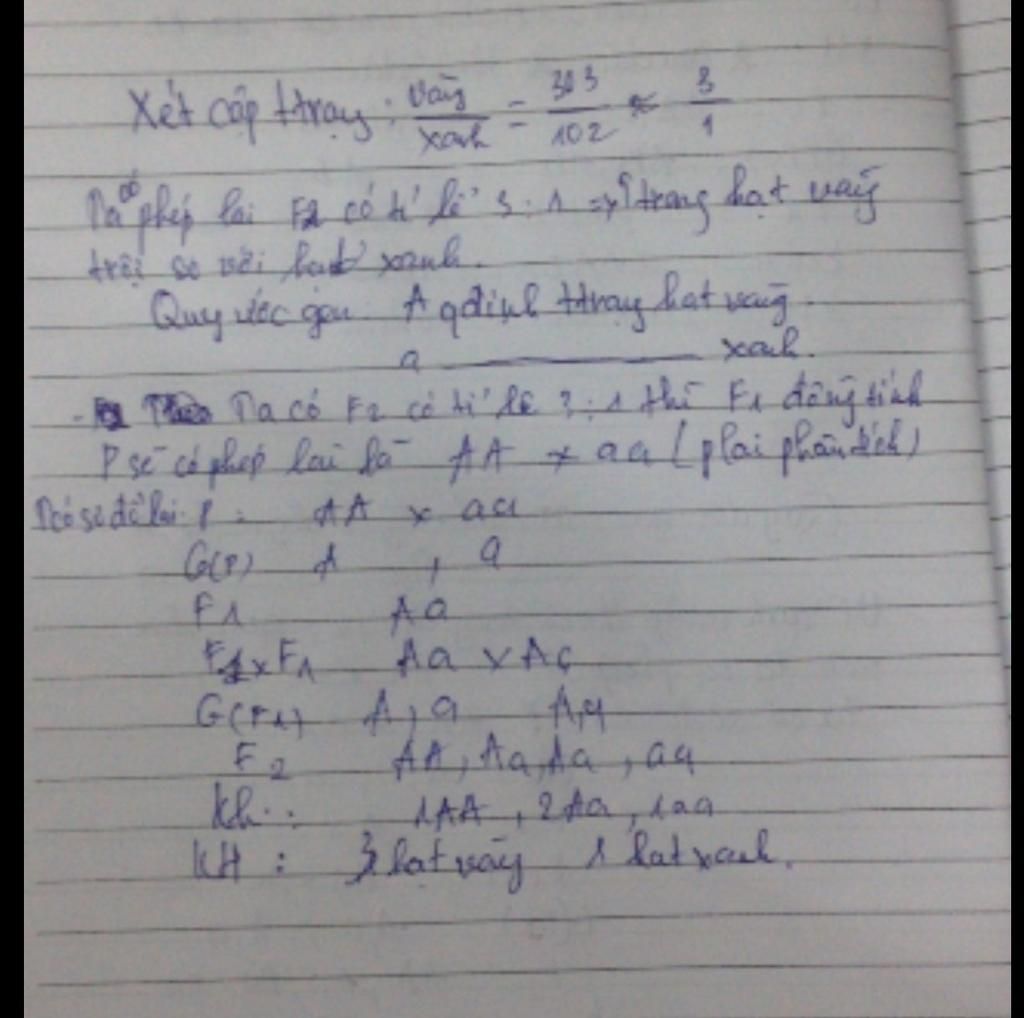 Xét cặp ttrạng: vàng/xanh = 303/102 ≈ 3/1
Ta có phép lai F2 có tỉ lệ 3:1 => ttrạng hạt vàng
trội so với hạt xanh.
Quy ước gen A qđịnh ttrạng hạt vàng.
a ———— xanh.
- Ta có F2 có tỉ lệ 3:1 thì F1 đồng tính
P sẽ có phép lai là AA x aa (plai phân tích)
Ta có sơ đồ lai: P: AA x aa
G(P) A , a
F1 Aa
F1 x F1 Aa x Aa
G(F1) A, a A, a
F2 AA, Aa, Aa, aa
1AA, 2Aa, 1aa
KH: 3 hạt vàng 1 hạt xanh.